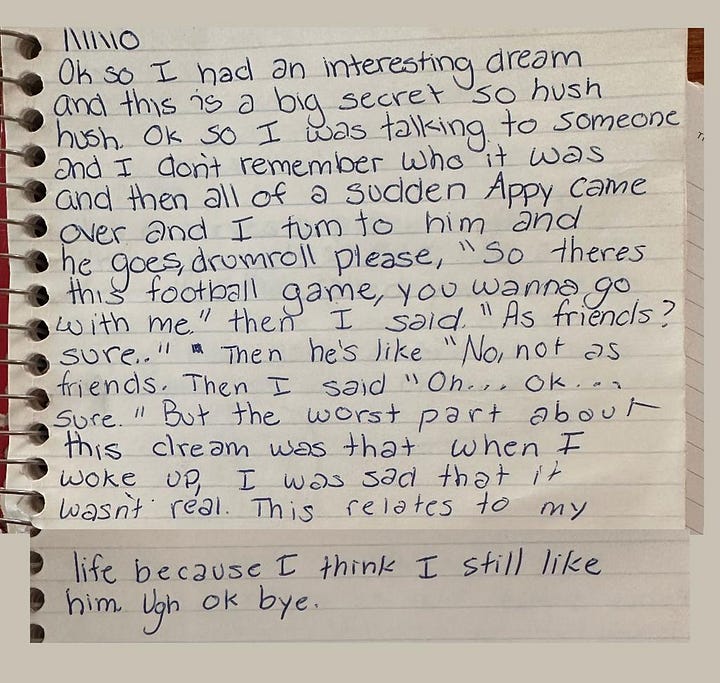 11/11/10
Ok so I had an interesting dream
and this is a big secret so hush
hush. Ok so I was talking to someone
and I don't remember who it was
and then all of a sudden Appy came
over and I turn to him and
he goes, drumroll please, "So theres
this football game, you wanna go
with me" then I said "As friends?
sure.." Then he's like "No, not as
friends. Then I said "Oh... ok...
sure." But the worst part about
this dream was that when I
woke up, I was sad that it
wasn't real. This relates to my
life because I think I still like
him. Ugh ok bye.